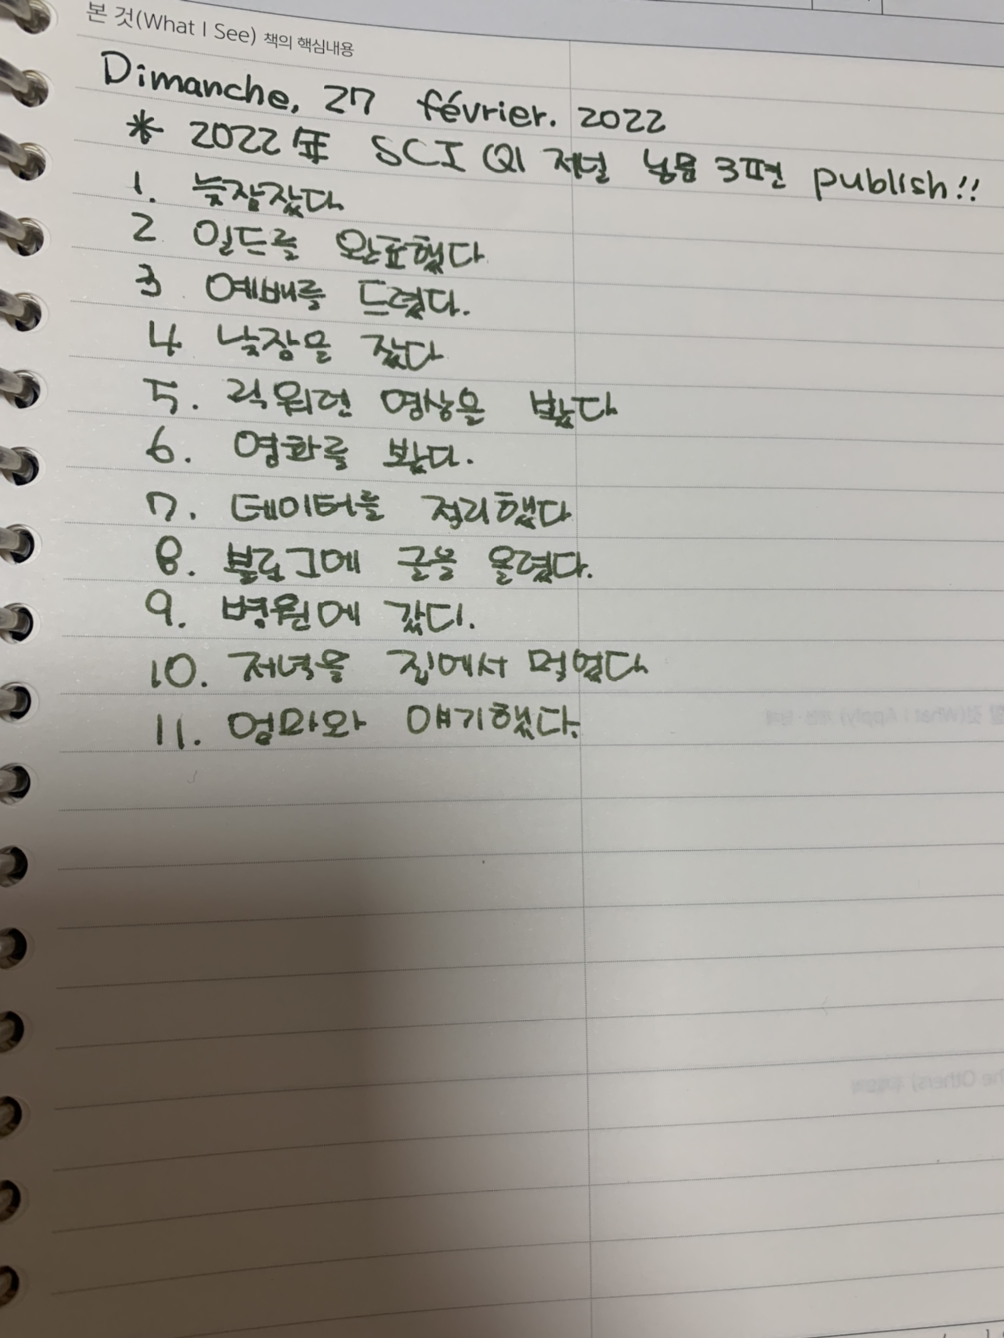 본 것(What I See) 책의 핵심내용
Dimanche, 27 février. 2022
* 2022年 SCI Q1 저널 논문 3편 publish!!
1. 늦잠잤다
2 일드를 완료했다
3 예배를 드렸다.
4 낮잠을 잤다
5. 영상을 봤다
6. 영화를 봤다.
7. 데이터를 정리했다
8. 블로그에 글을 올렸다.
9. 병원에 갔다.
10. 저녁을 집에서 먹었다
11. 엄마와 얘기했다.